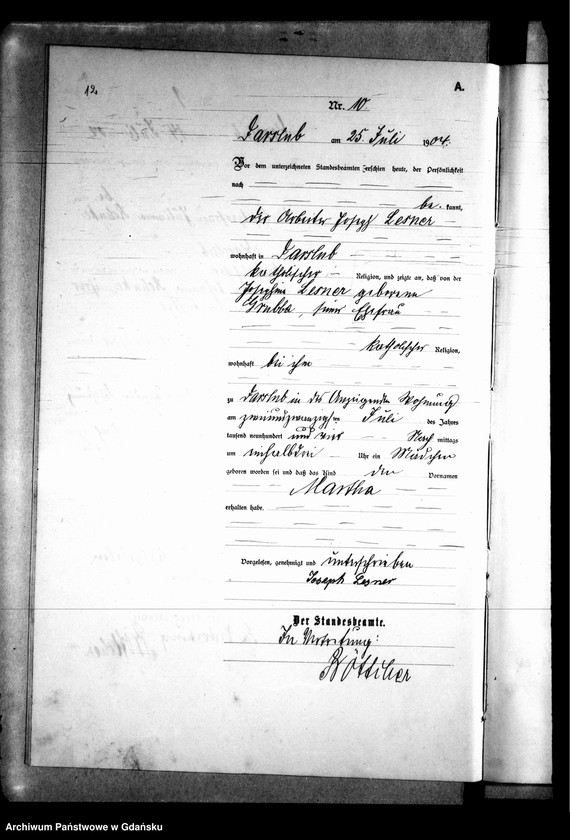 12.
A.
Nr. 10
Darslub am 25. Juli 1904.
Vor dem unterzeichneten Standesbeamten erschien heute, der Persönlichkeit
nach
be kannt,
der Arbeiter Joseph Lesner
wohnhaft in Darslub
katholischer Religion, und zeigte an, daß von der
Josephine Lesner geborene
Grubba, seiner Ehefrau
katholischer Religion,
wohnhaft bei ihm
zu Darslub in des Anzeigenden Wohnung
am zweiundzwanzigsten Juli des Jahres
tausend neunhundert und vier Nach mittags
um Uhr ein Mädchen
geboren worden sei und daß das Kind den Vornamen
Martha
erhalten habe.
Vorgelesen, genehmigt und unterschrieben
Joseph Lesner
Der Standesbeamte.
In Vertretung:
Böttcher
Archiwum Państwowe w Gdańsku